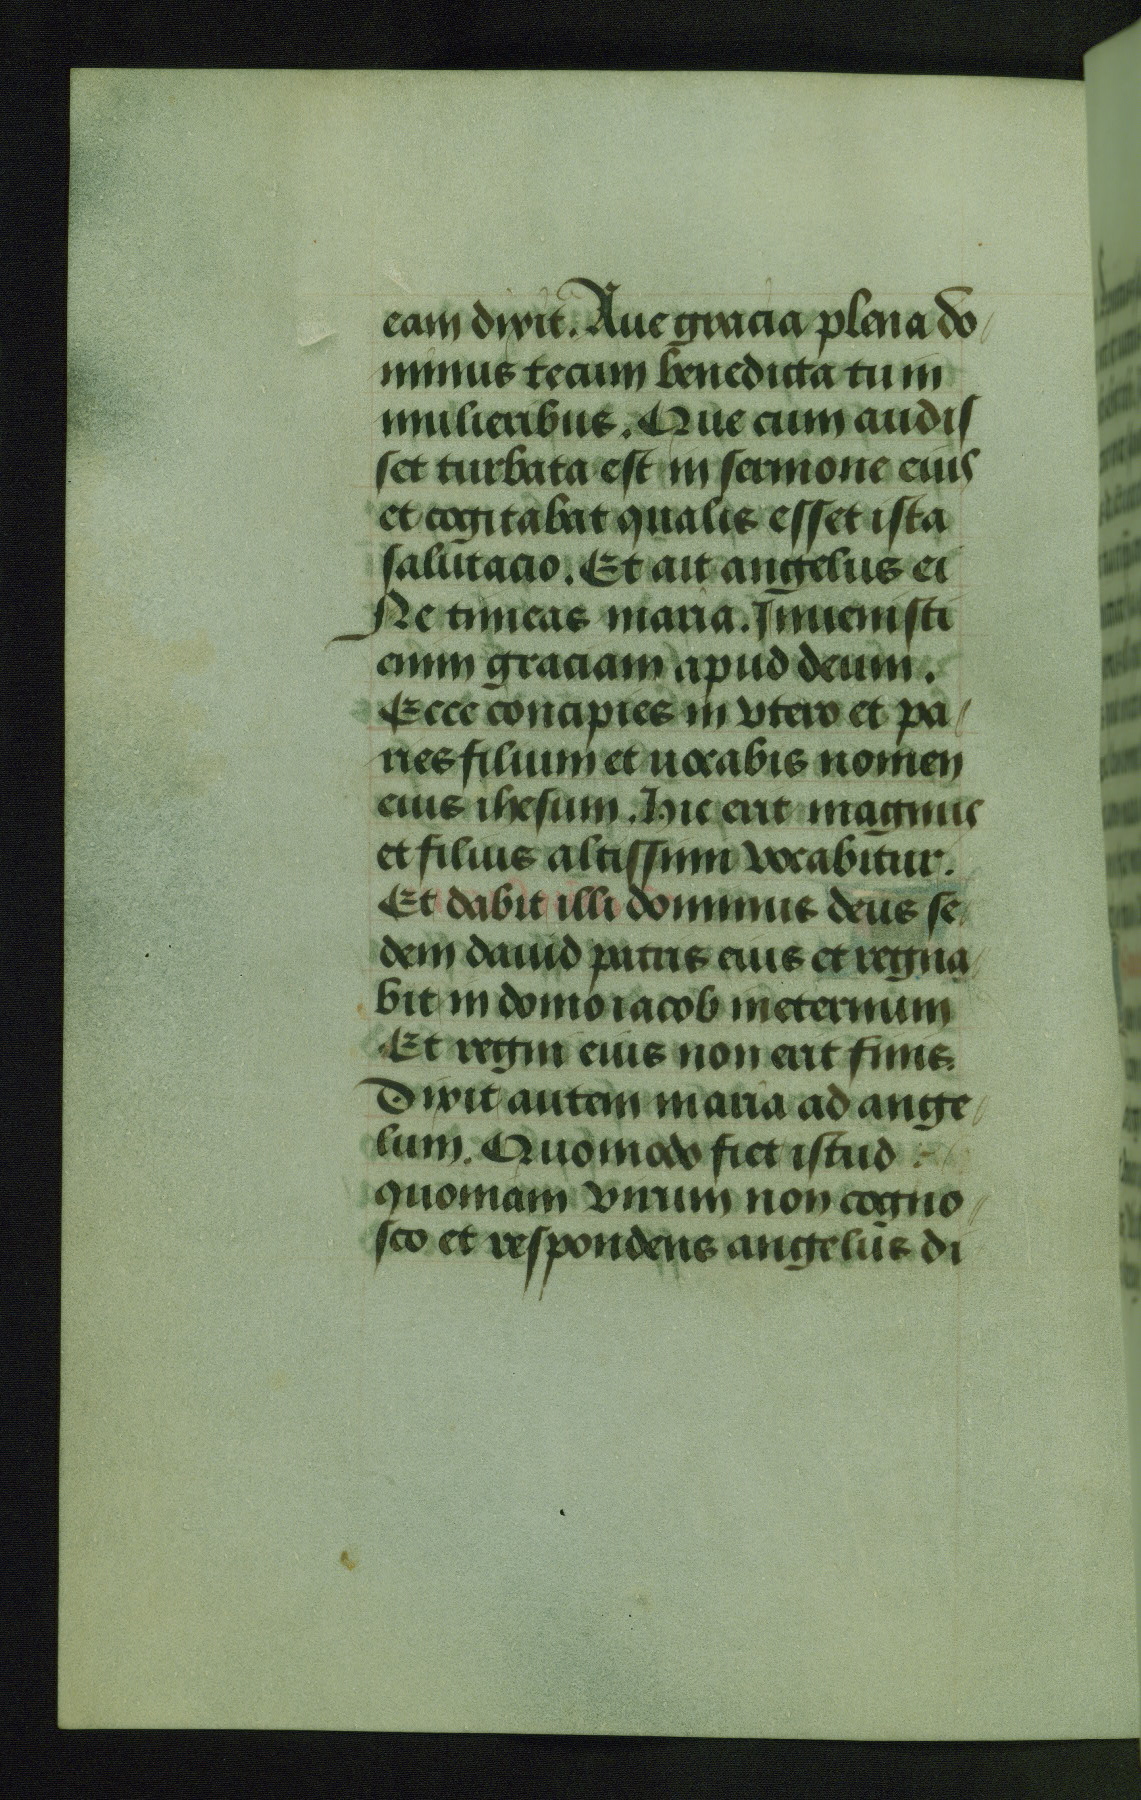 eam dixit. Aue gracia plena do
minus tecum benedicta tu in
mulieribus. Que cum audis
set turbata est in sermone eius
et cogitabat qualis esset ista
salutacio. Et ait angelus ei
Ne timeas maria. Inuenisti
enim graciam apud deum.
Ecce concipies in vtero et pa
ries filium et uocabis nomen
eius ihesum. Hic erit magnus
et filius altissimi vocabitur.
Et dabit illi dominus deus se
dem dauid patris eius et regna
bit in domo iacob in eternum
Et regni eius non erit finis.
Dixit autem maria ad ange
lum. Quomodo fiet istud
quoniam virum non cogno
sco et respondens angelus di